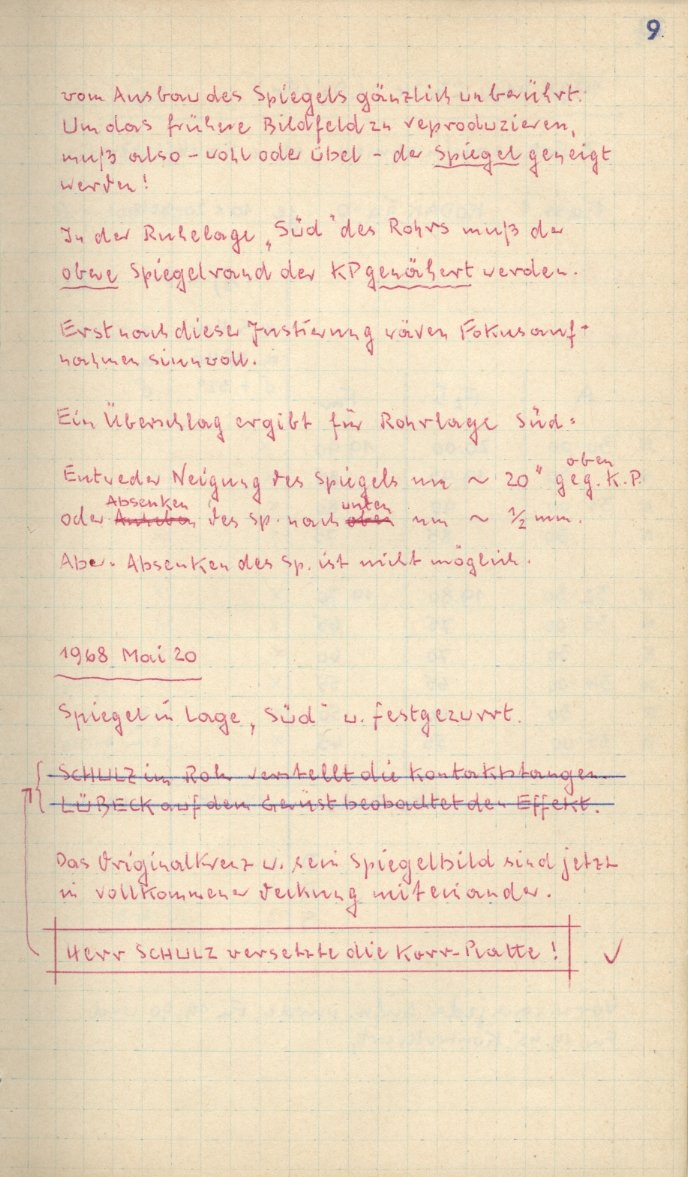 9
vom Ausbau des Spiegels gänzlich unberührt.
Um das frühere Bildfeld zu reproduzieren,
muß also – wohl oder übel – der Spiegel geneigt
werden!
In der Ruhelage „Süd“ des Rohrs muß der
obere Spiegelrand der KP genähert werden.
Erst nach dieser Justierung wären Fokusauf-
nahmen sinnvoll.
Ein Überschlag ergibt für Rohrlage Süd:
oben
Entweder Neigung des Spiegels um ~ 20" geg. K.P.
Absenken unten
oder Anheben des Sp. nach oben um ~ 1/2 mm.
Aber: Absenken des Sp. ist nicht möglich.
1968 Mai 20
Spiegel in Lage „Süd“ u. festgezurrt.
SCHULZ im Rohr verstellt die Kontaktstangen.
LÜBECK auf dem Gerüst beobachtet den Effekt.
Das Originalkreuz u. sein Spiegelbild sind jetzt
in vollkommener Deckung miteinander.
Herr SCHULZ versetzte die Korr-Platte! ✓